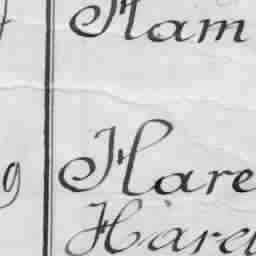 Ham
9 Hare
Hare